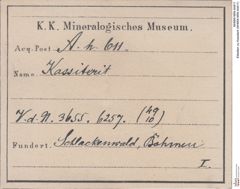 K. K. Mineralogisches Museum.
Acq. Post A. h. 611.
Name Kassiterit
V. d. N. 3655. 6257. (49/10)
Fundort: Schlackenwald, Böhmen
I.